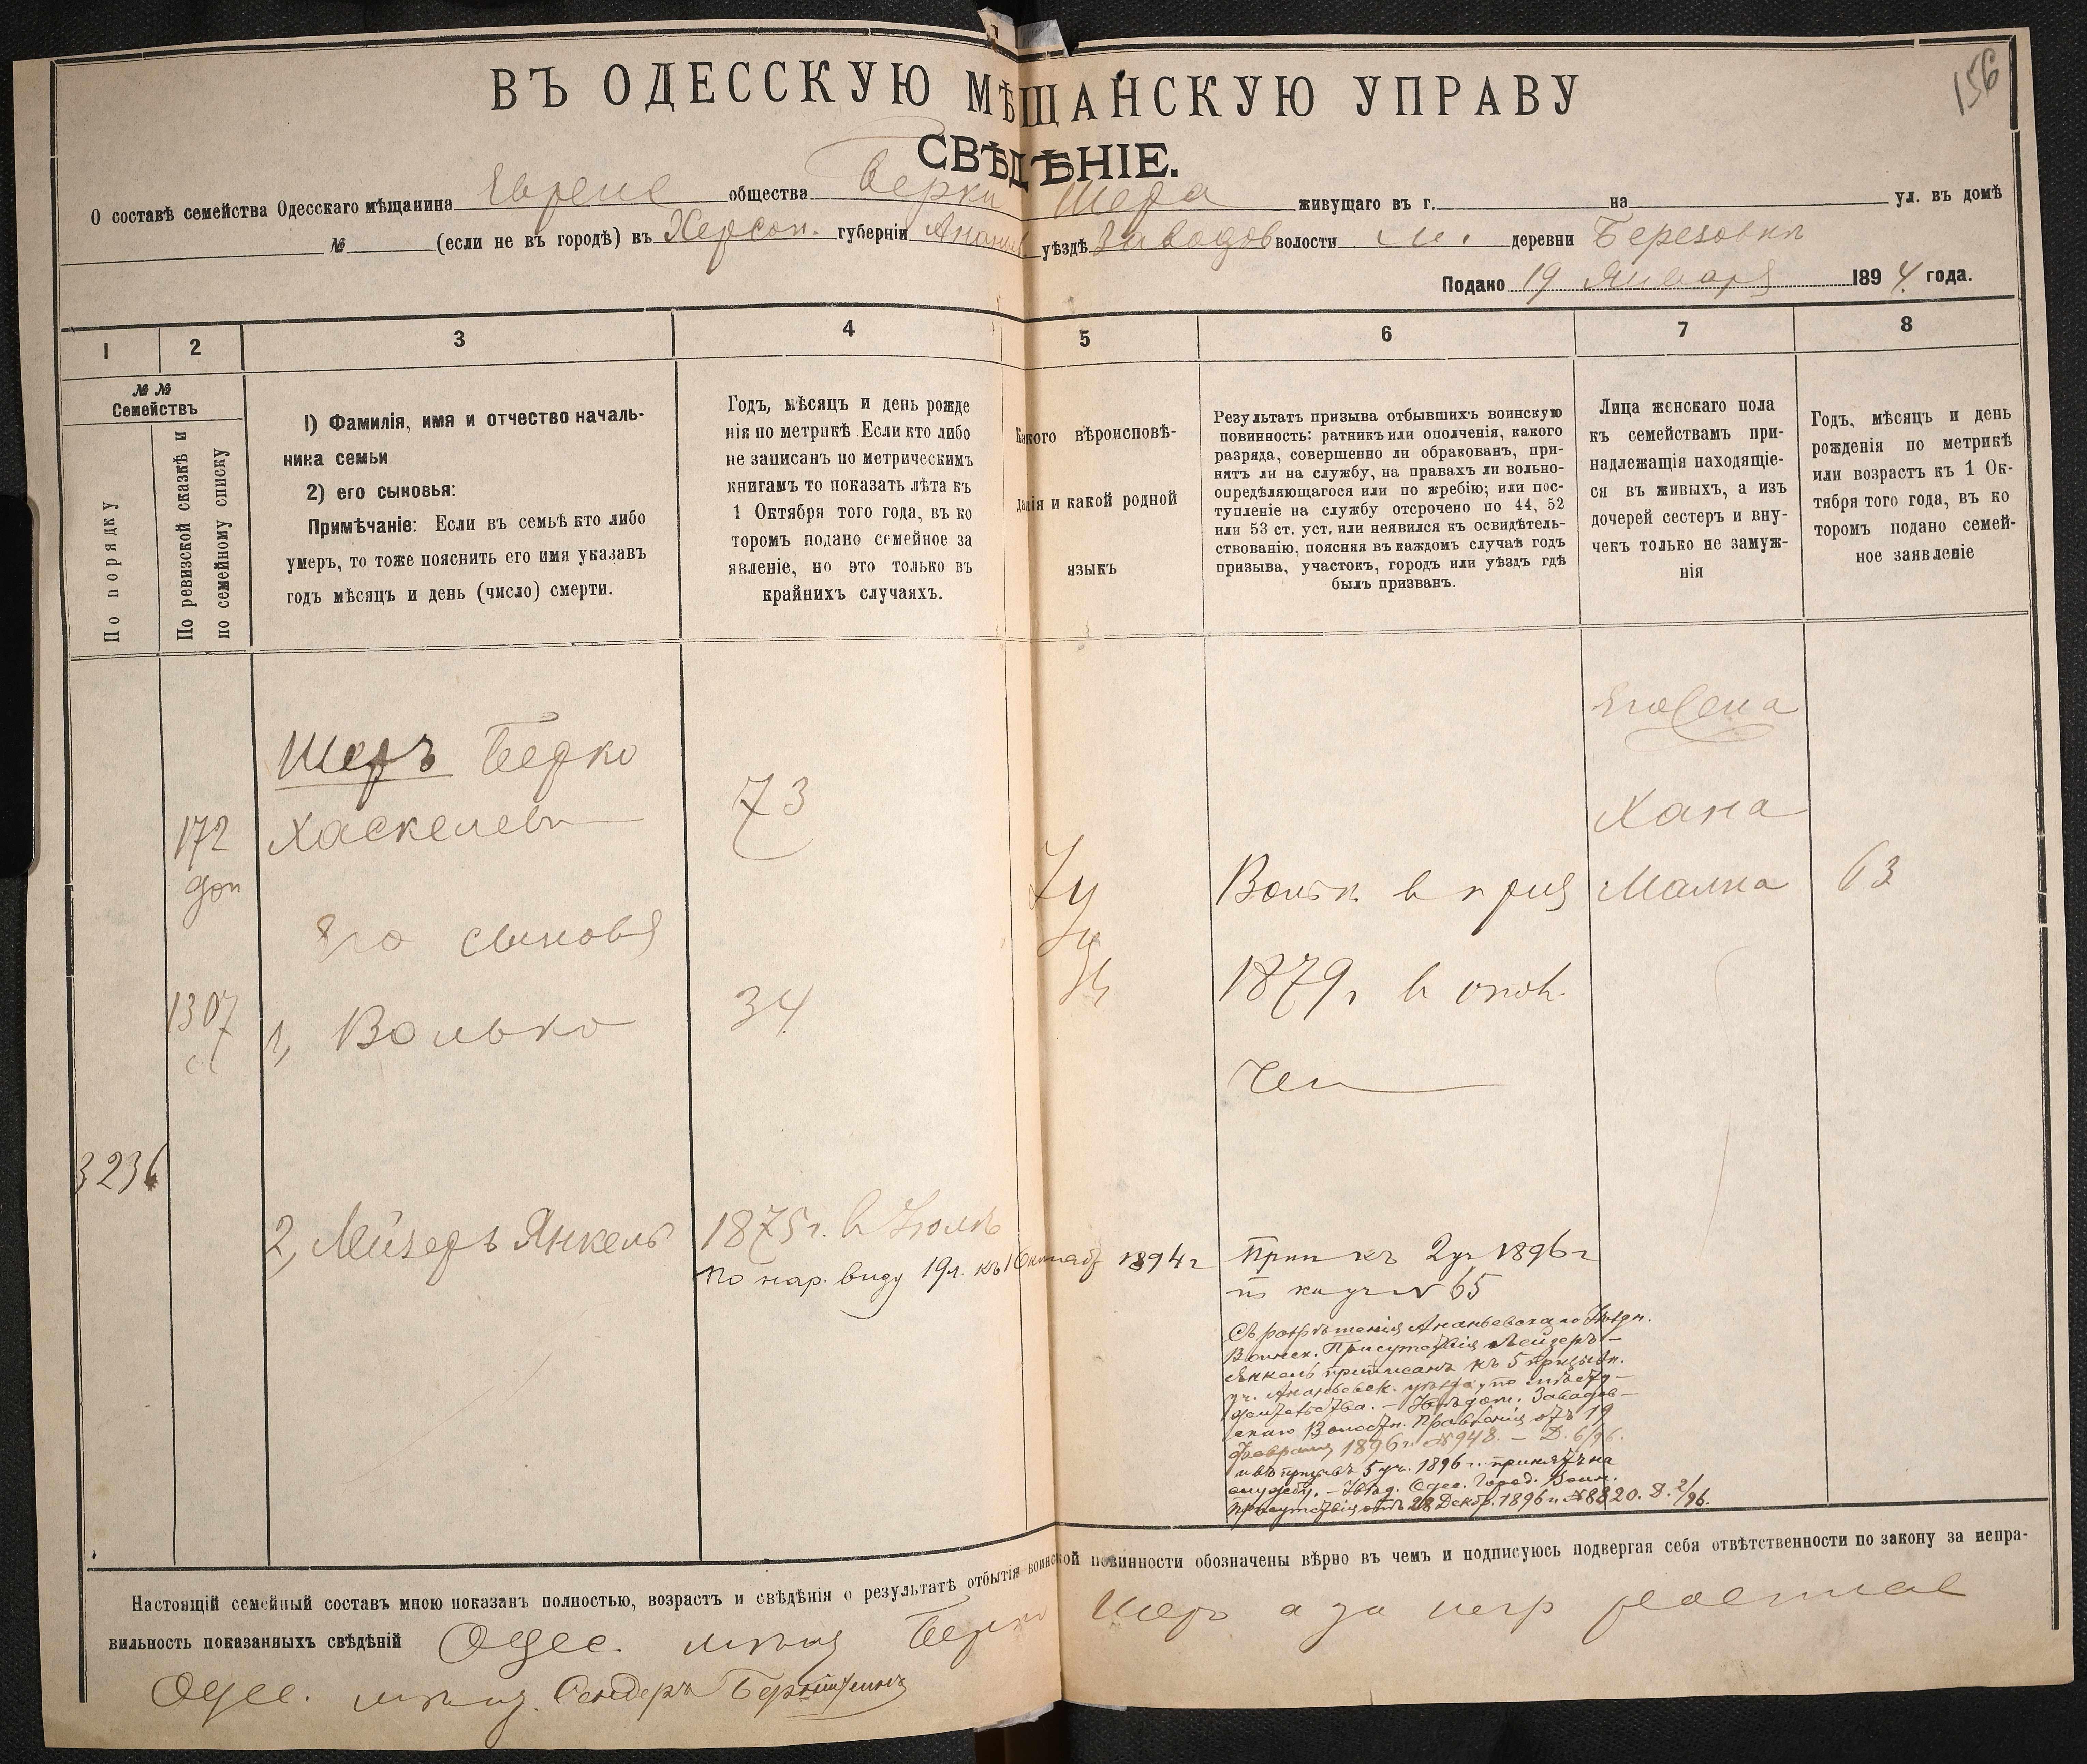 156
ВЪ ОДЕССКУЮ МѢЩАНСКУЮ УПРАВУ
СВѢДѢНІЕ.
О составѣ семейства Одесскаго мѣщанина Евреис общества Берки Шера живущаго въ г. на ул. въ домѣ
№ (если не въ городѣ) въ Херсон. губерніи Ананьев. уѣздѣ Заводов волости м. деревни Березовкѣ
Подано 19 Января 1894 года.
1 2 3 4 5 6 7 8
№ №
Семействъ
По порядку
По ревизской сказкѣ и
по семейному списку
1) Фамилія, имя и отчество началь-
ника семьи
2) его сыновья:
Примѣчаніе: Если въ семьѣ кто либо
умеръ, то тоже пояснить его имя указавъ
годъ мѣсяцъ и день (число) смерти.
Годъ, мѣсяцъ и день рожде
нія по метрикѣ Если кто либо
не записанъ по метрическимъ
книгамъ то показать лѣта къ
1 Октября того года, въ ко
торомъ подано семейное за
явленіе, но это только въ
крайнихъ случаяхъ.
Какого вѣроисповѣ-
данія и какой родной
языкъ
Результатъ призыва отбывшихъ воинскую
повинность: ратникъ или ополченія, какого
разряда, совершенно ли обракованъ, при-
нятъ ли на службу, на правахъ ли вольно-
опредѣляющагося или по жребію; или пос-
тупленіе на службу отсрочено по 44, 52
или 53 ст. уст. или неявился къ освидѣтель-
ствованію, поясняя въ каждомъ случаѣ годъ
призыва, участокъ, городъ или уѣздъ гдѣ
былъ призванъ.
Лица женскаго пола
къ семействамъ при-
надлежащія находящіе-
ся въ живыхъ, а изъ
дочерей сестеръ и вну-
чекъ только не замуж-
нія
Годъ, мѣсяцъ и день
рожденія по метрикѣ
или возрастъ къ 1 Ок-
тября того года, въ ко
торомъ подано семей-
ное заявленіе
Его жена
Шеръ Берко
172 Хаскелев 73 Хана
доп Малка 63
Его сыновья
1307 1, Волько 34 1879 г в
3236
2, Лейзеръ Янкель 1875 г. в Іюлѣ
По нар. виду 19 л. къ 1 Октября 1894 г
Прип къ 2 уч 1896 г
№ 65
Съ разрѣшенія Ананьевскаго Уѣздн.
Воинск. Присутствія Лейзеръ-
Янкель приписанъ къ 5 призывн.
уч. Ананьевск. уѣзда, по мѣсту
жительства. – Увѣдом. Завадов-
скаго Волостн. Правленія отъ 19
Февраля 1896 г. № 948. – Д. 6/96.
и въ призывъ 5 уч. 1896 г. принятъ на
службу. – Увѣд. Одес. Город. Воин.
Присутствія отъ 28 Декабр. 1896 г. № 8820. Д. 2/96.
Настоящій семейный составъ мною показанъ полностью, возрастъ и свѣдѣнія о результатѣ отбытія воинской повинности обозначены вѣрно въ чемъ и подписуюсь подвергая себя отвѣтственности по закону за непра-
вильность показанныхъ свѣдѣній Одес. мѣщ Берко Шеръ а за негр
Одес. мѣщ. Сендеръ